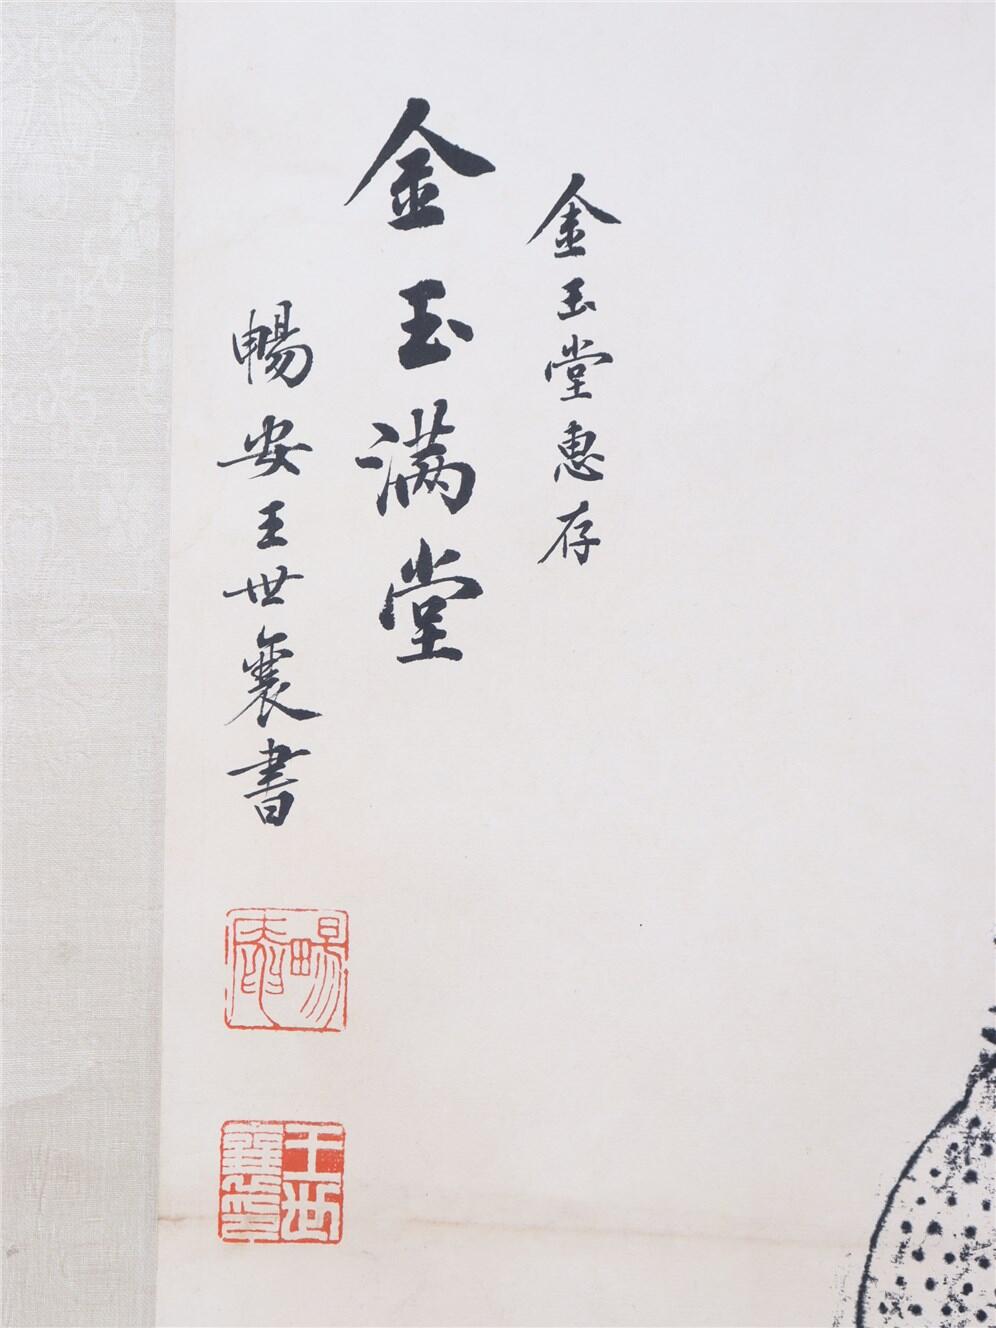 金玉堂惠存
金玉满堂
暢安王世襄書
暢安
王世襄章